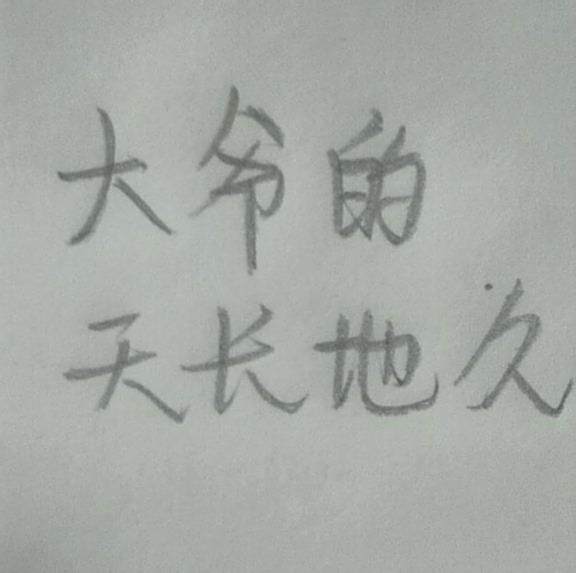 大爷的
天长地久